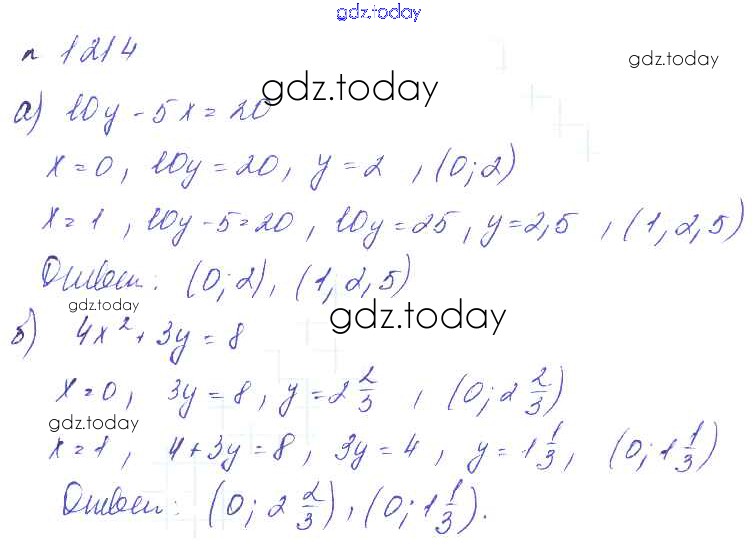 gdz.today
n 1214
gdz.today
gdz.today
а) 10y - 5x = 20
x = 0, 10y = 20, y = 2, (0; 2)
x = 1, 10y - 5 = 20, 10y = 25, y = 2,5, (1, 2,5)
Ответ: (0; 2), (1; 2,5)
gdz.today
gdz.today
б) 4x² + 3y = 8
x = 0, 3y = 8, y = 2 2/3, (0; 2 2/3)
gdz.today
x = 1, 4 + 3y = 8, 3y = 4, y = 1 1/3, (0; 1 1/3)
Ответ: (0; 2 2/3), (0; 1 1/3).